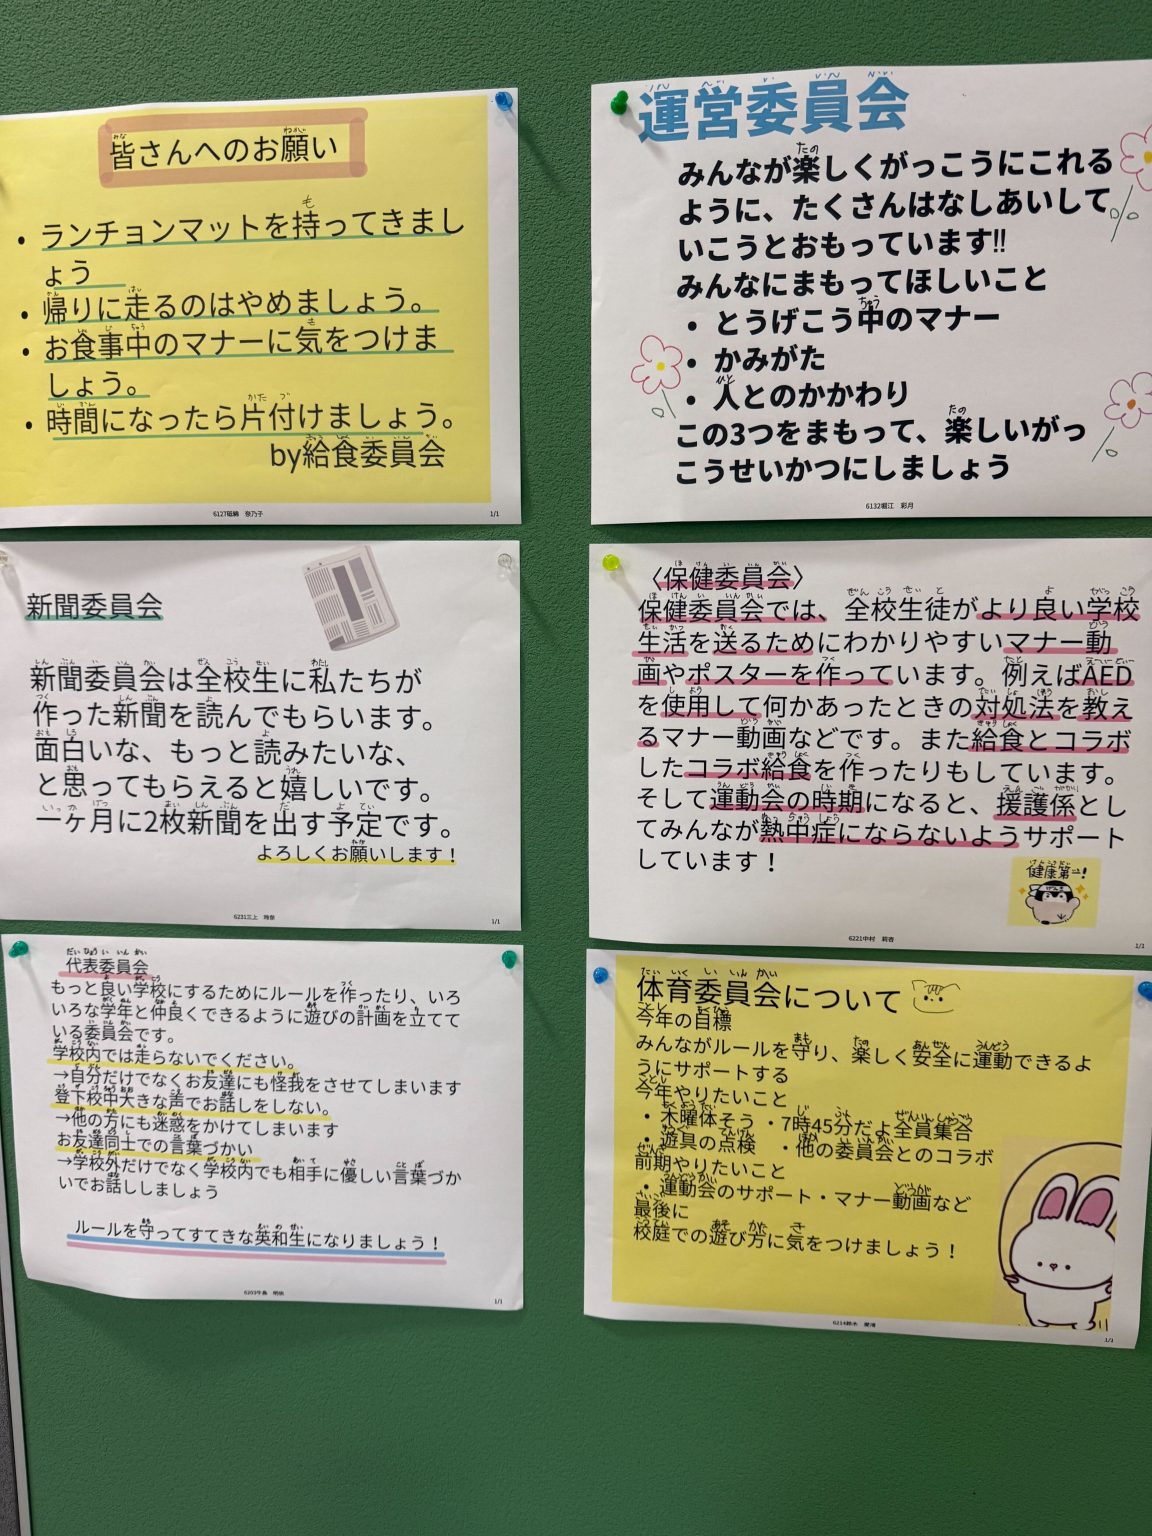 皆さんへのお願い
・ランチョンマットを持ってきまし
ょう
・帰りに走るのはやめましょう。
・お食事中のマナーに気をつけま
しょう。
・時間になったら片付けましょう。
by給食委員会
1/1
運営委員会
みんなが楽しくがっこうにこれる
ように、たくさんはなしあいして
いこうとおもっています!!
みんなにまもってほしいこと
・とうげこう中のマナー
・かみがた
・人とのかかわり
この3つをまもって、楽しいがっ
こうせいかつにしましょう
6132堀江 彩月
新聞委員会
新聞委員会は全校生に私たちが
作った新聞を読んでもらいます。
面白いな、もっと読みたいな、
と思ってもらえると嬉しいです。
一ヶ月に2枚新聞を出す予定です。
よろしくお願いします！
1/1
〈保健委員会〉
保健委員会では、全校生徒がより良い学校
生活を送るためにわかりやすいマナー動
画やポスターを作っています。例えばAED
を使用して何かあったときの対処法を教え
るマナー動画などです。また給食とコラボ
したコラボ給食を作ったりもしています。
そして運動会の時期になると、援護係とし
てみんなが熱中症にならないようサポート
しています！
健康第一!
6221中村 莉杏
1/1
代表委員会
もっと良い学校にするためにルールを作ったり、いろ
いろな学年と仲良くできるように遊びの計画を立てて
いる委員会です。
学校内では走らないでください。
→自分だけでなくお友達にも怪我をさせてしまいます
登下校中大きな声でお話しをしない。
→他の方にも迷惑をかけてしまいます
お友達同士での言葉づかい
→学校外だけでなく学校内でも相手に優しい言葉づか
いでお話ししましょう
ルールを守ってすてきな英和生になりましょう！
1/1
体育委員会について
今年の目標
みんながルールを守り、楽しく安全に運動できるよ
うにサポートする
今年やりたいこと
・木曜体そう ・7時45分だよ全員集合
・遊具の点検 ・他の委員会とのコラボ
前期やりたいこと
・運動会のサポート・マナー動画など
最後に
校庭での遊び方に気をつけましょう！
1/1